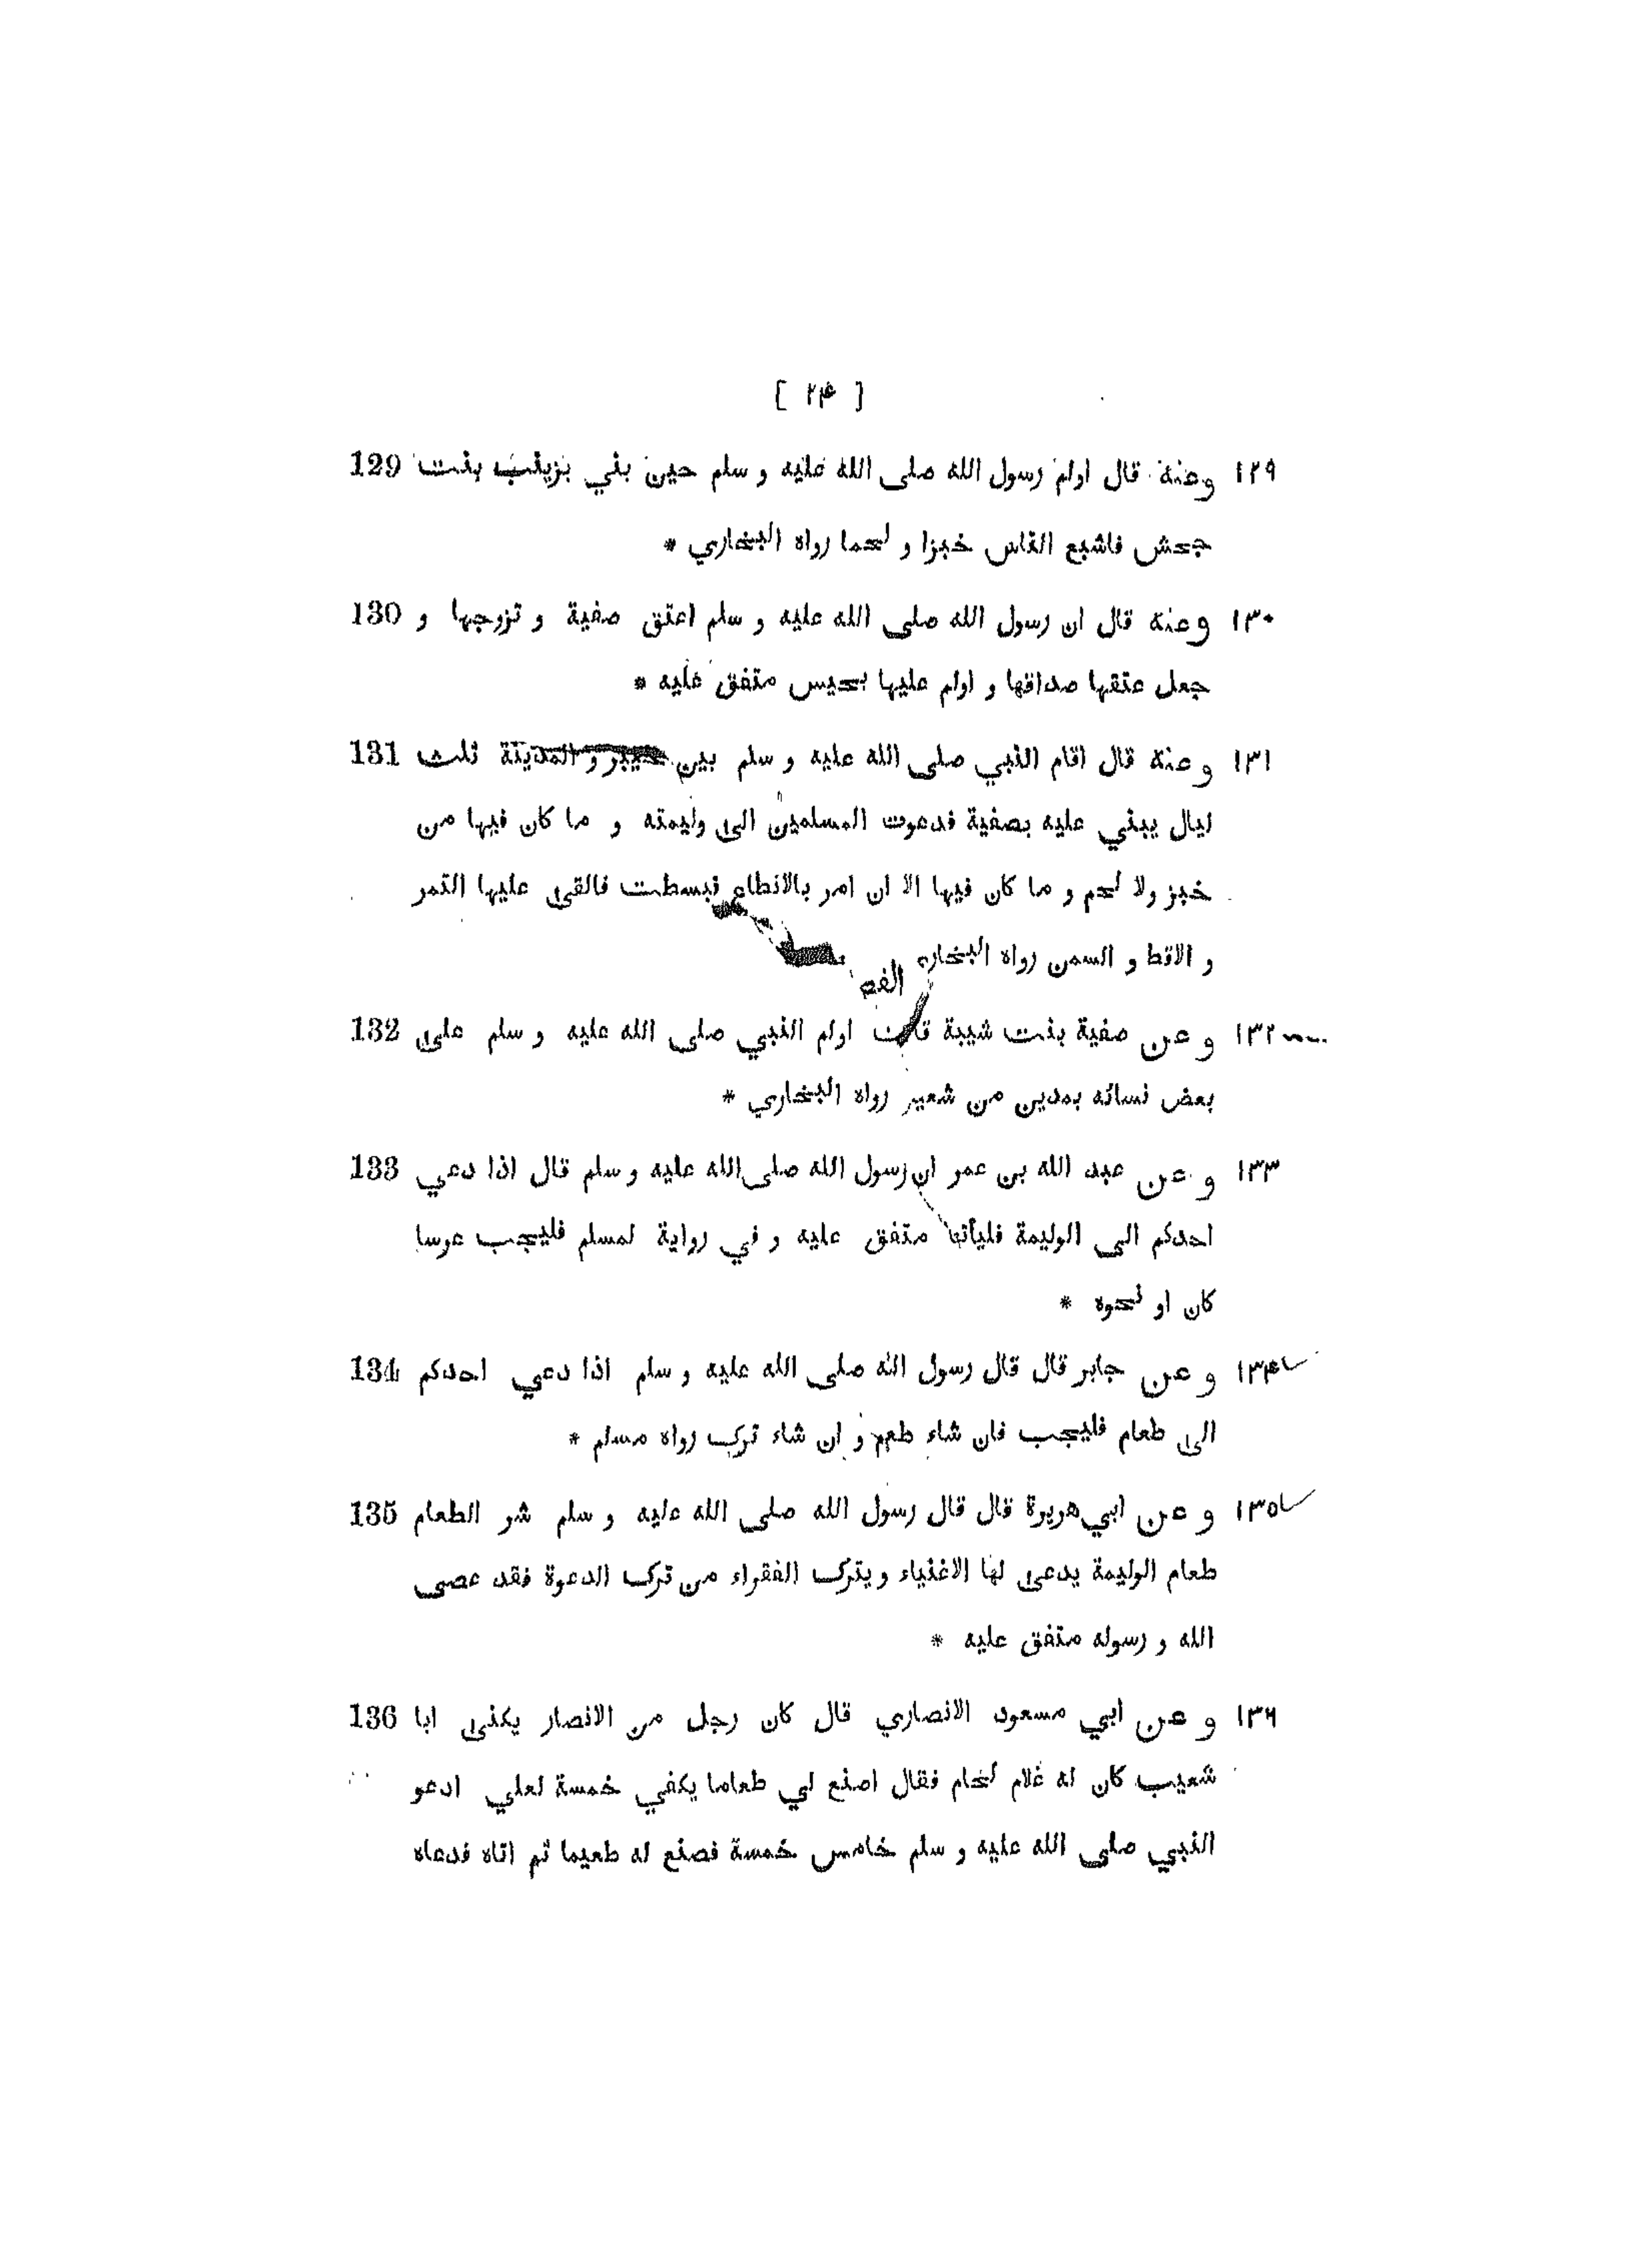 [ ۲۴ ]
۱۲۹ وعنه قال اولم رسول الله صلى الله عليه و سلم حين بني بزينب بنت 129
جحش فاشبع الناس خبزا و لحما رواه البخاري *
۱۳۰ وعنه قال ان رسول الله صلى الله عليه و سلم اعتق صفية و تزوجها و 130
جعل عتقها صداقها و اولم عليها بحيس متفق عليه *
۱۳۱ و عنه قال اقام النبي صلى الله عليه و سلم بين خيبر و المدينة ثلث 131
ليال يبني عليه بصفية فدعوت المسلمين الى وليمته و ما كان فيها من
خبز ولا لحم و ما كان فيها الا ان امر بالانطاع فبسطت فالقى عليها التمر
و الاقط و السمن رواه البخاري
۱۳۲ و عن صفية بنت شيبة قالت اولم النبي صلى الله عليه و سلم على 132
بعض نسائه بمدين من شعير رواه البخاري *
۱۳۳ و عن عبد الله بن عمر ان رسول الله صلى الله عليه و سلم قال اذا دعي 133
احدكم الى الوليمة فليأتها متفق عليه و في رواية لمسلم فليجب عرسا
كان او نحوه *
۱۳۴ و عن جابر قال قال رسول الله صلى الله عليه و سلم اذا دعي احدكم 134
الى طعام فليجب فان شاء طعم و ان شاء ترك رواه مسلم *
۱۳۵ و عن ابي هريرة قال قال رسول الله صلى الله عليه و سلم شر الطعام 135
طعام الوليمة يدعى لها الاغنياء و يترك الفقراء من ترك الدعوة فقد عصى
الله و رسوله متفق عليه *
۱۳۶ و عن ابي مسعود الانصاري قال كان رجل من الانصار يكنى ابا 136
شعيب كان له غلام لحام فقال اصنع لي طعاما يكفي خمسة لعلي ادعو
النبي صلى الله عليه و سلم خامس خمسة فصنع له طعيما ثم اتاه فدعاه